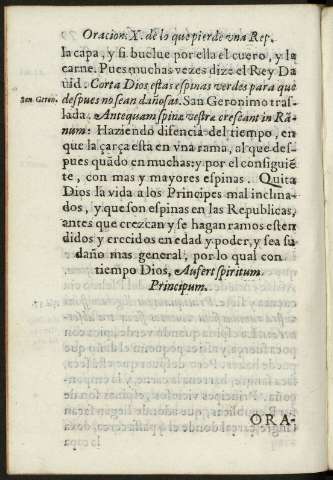 Oracion. X. de lo que pierde vna Rep.
la capa, y si buelue por ella el cuero, y la
carne. Pues muchas vezes dize el Rey Da
uid. Corta Dios estas espinas verdes para que
San Geron.
despues no sean dañosas. San Geronimo tras-
lada. Antequam spinæ vestræ crescant in Rã-
num: Haziendo diferencia del tiempo, en
que la çarça está en vna rama, al que des-
pues quãdo en muchas: y por el consiguiẽ
te, con mas y mayores espinas. Quita
Dios la vida a los Principes mal inclina-
dos, y que son espinas en las Republicas,
antes que crezcan y se hagan ramos esten
didos y crecidos en edad y poder, y sea su
daño mas general, por lo qual con
tiempo Dios, Aufert spiritum
Principum.
ORA-